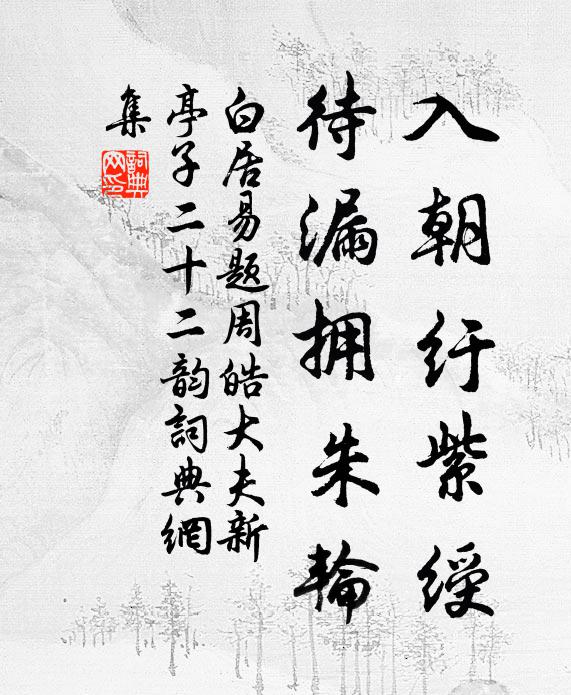 入朝纡紫绶
待漏拥朱轮
白居易题周皓大夫新
亭子二十二韵詞典網
集
詞典网印